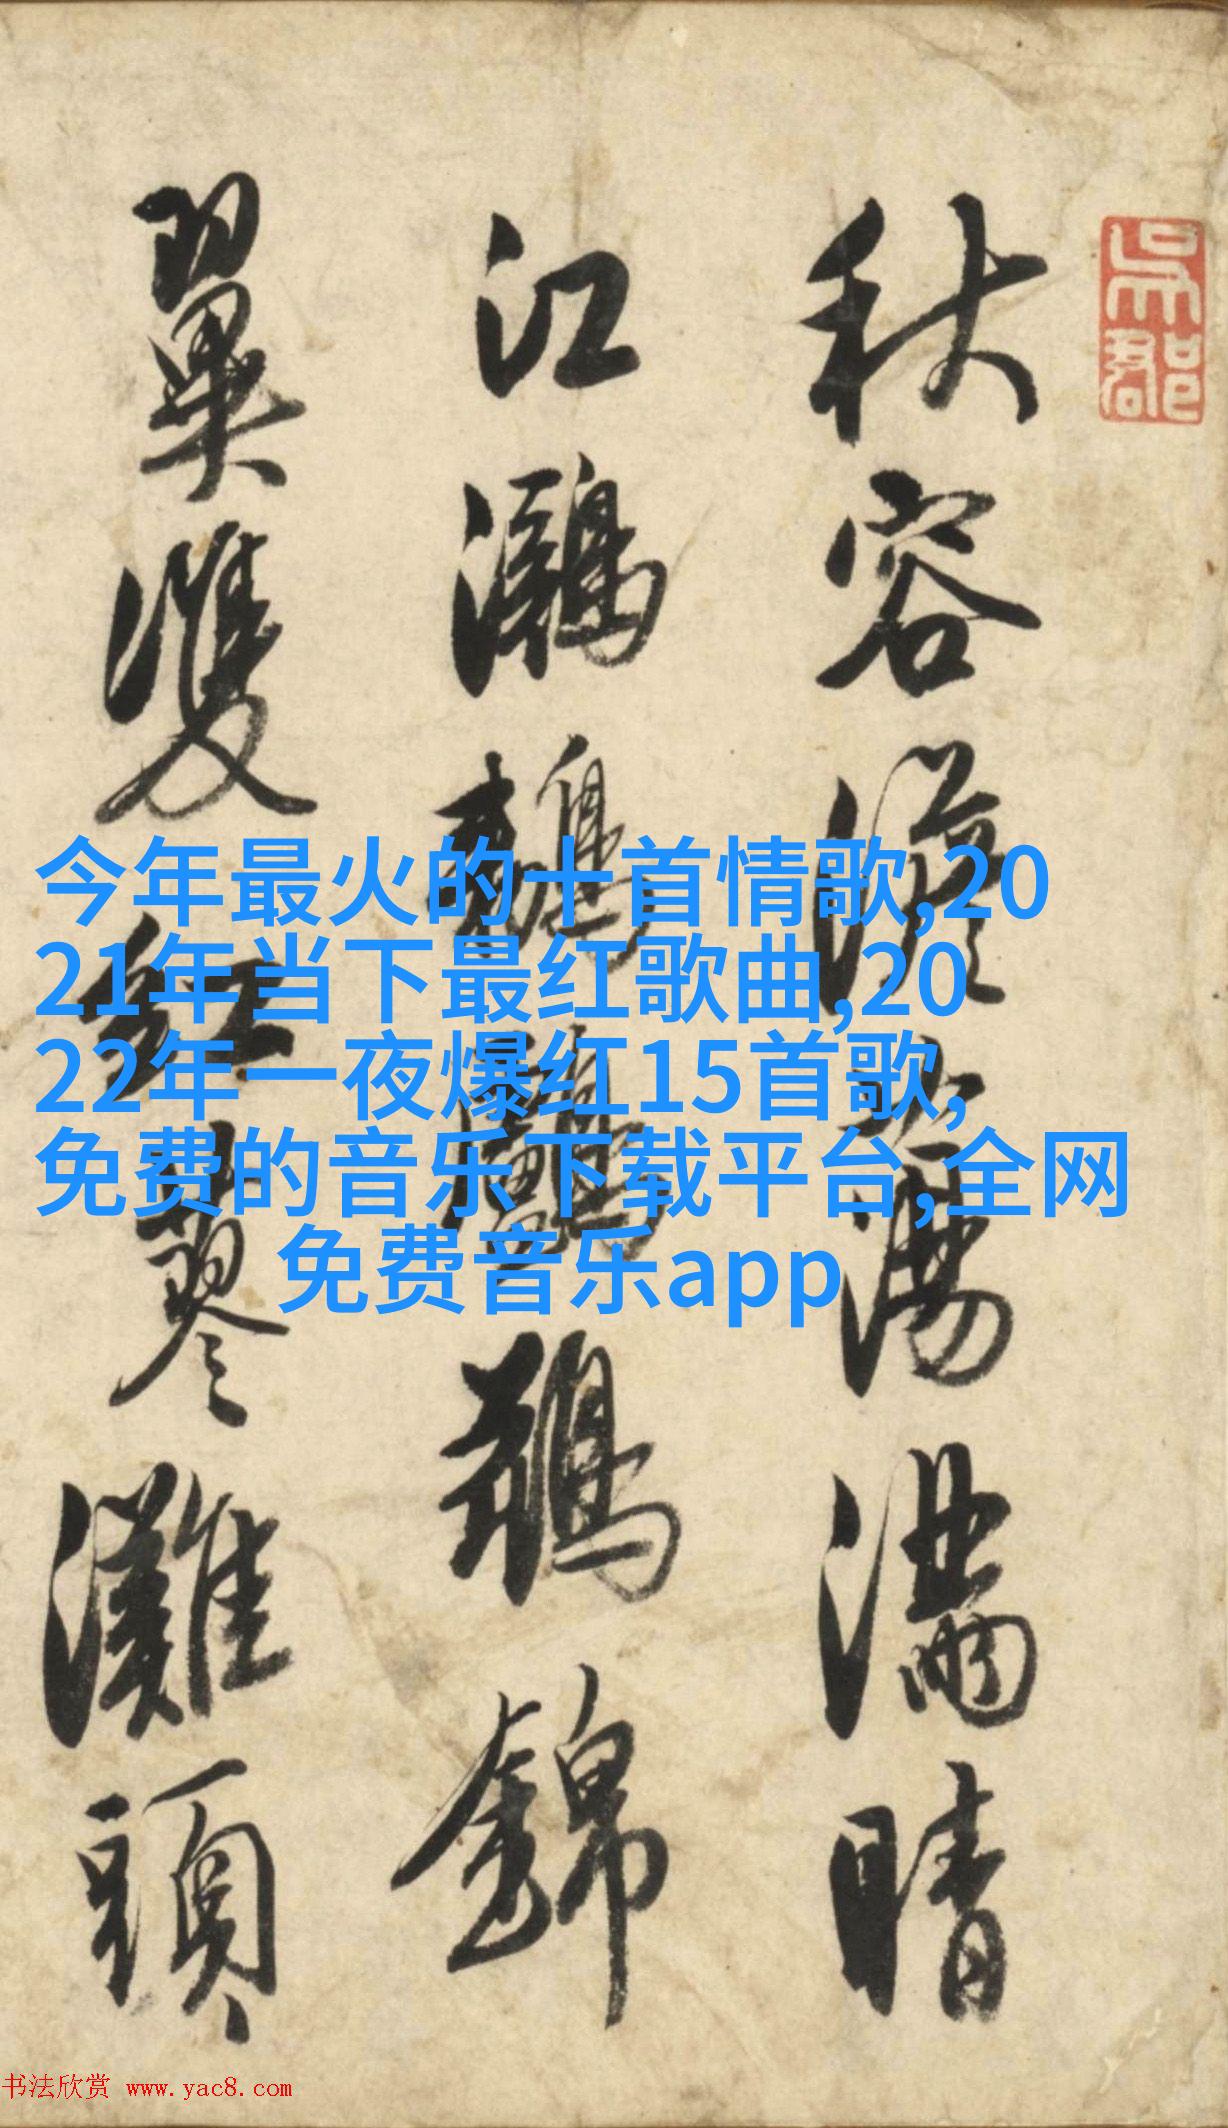 吳郡
秋容澹蕩滿晴
江鸂鶒鸕鷀錦
翼雙紅蓼灘頭
今年最火的十首情歌,20
21年当下最红歌曲,20
22年一夜爆红15首歌,
免费的音乐下载平台,全网
免费音乐app
书法欣赏 www.yac8.com